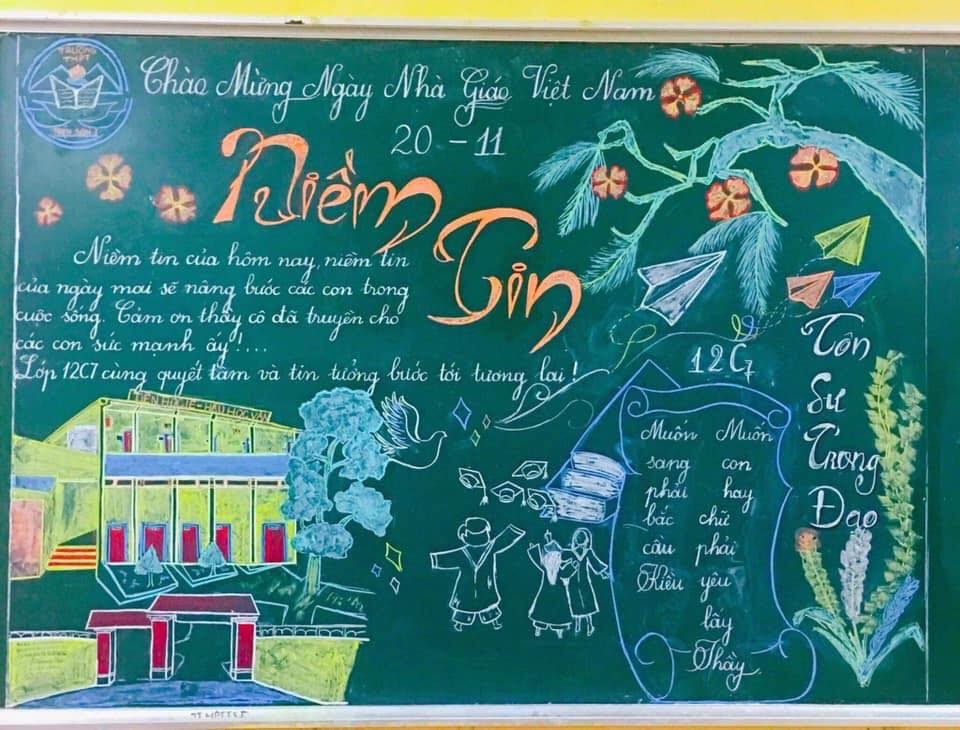 TRƯỜNG
THPT
Chào Mừng Ngày Nhà Giáo Việt Nam
20 - 11
Niềm
Tin
Niềm tin của hôm nay, niềm tin
của ngày mai sẽ nâng bước các con trong
cuộc sống. Cảm ơn thầy cô đã truyền cho
các con sức mạnh ấy!....
Lớp 12C7 cùng quyết tâm và tin tưởng bước tới tương lai!
TIÊN HỌC LỄ - HẬU HỌC VĂN
12C7
Muốn
sang
phải
bắc
cầu
Kiều
Muốn
con
hay
chữ
phải
yêu
lấy
Thầy
Tôn
Sư
Trọng
Đạo